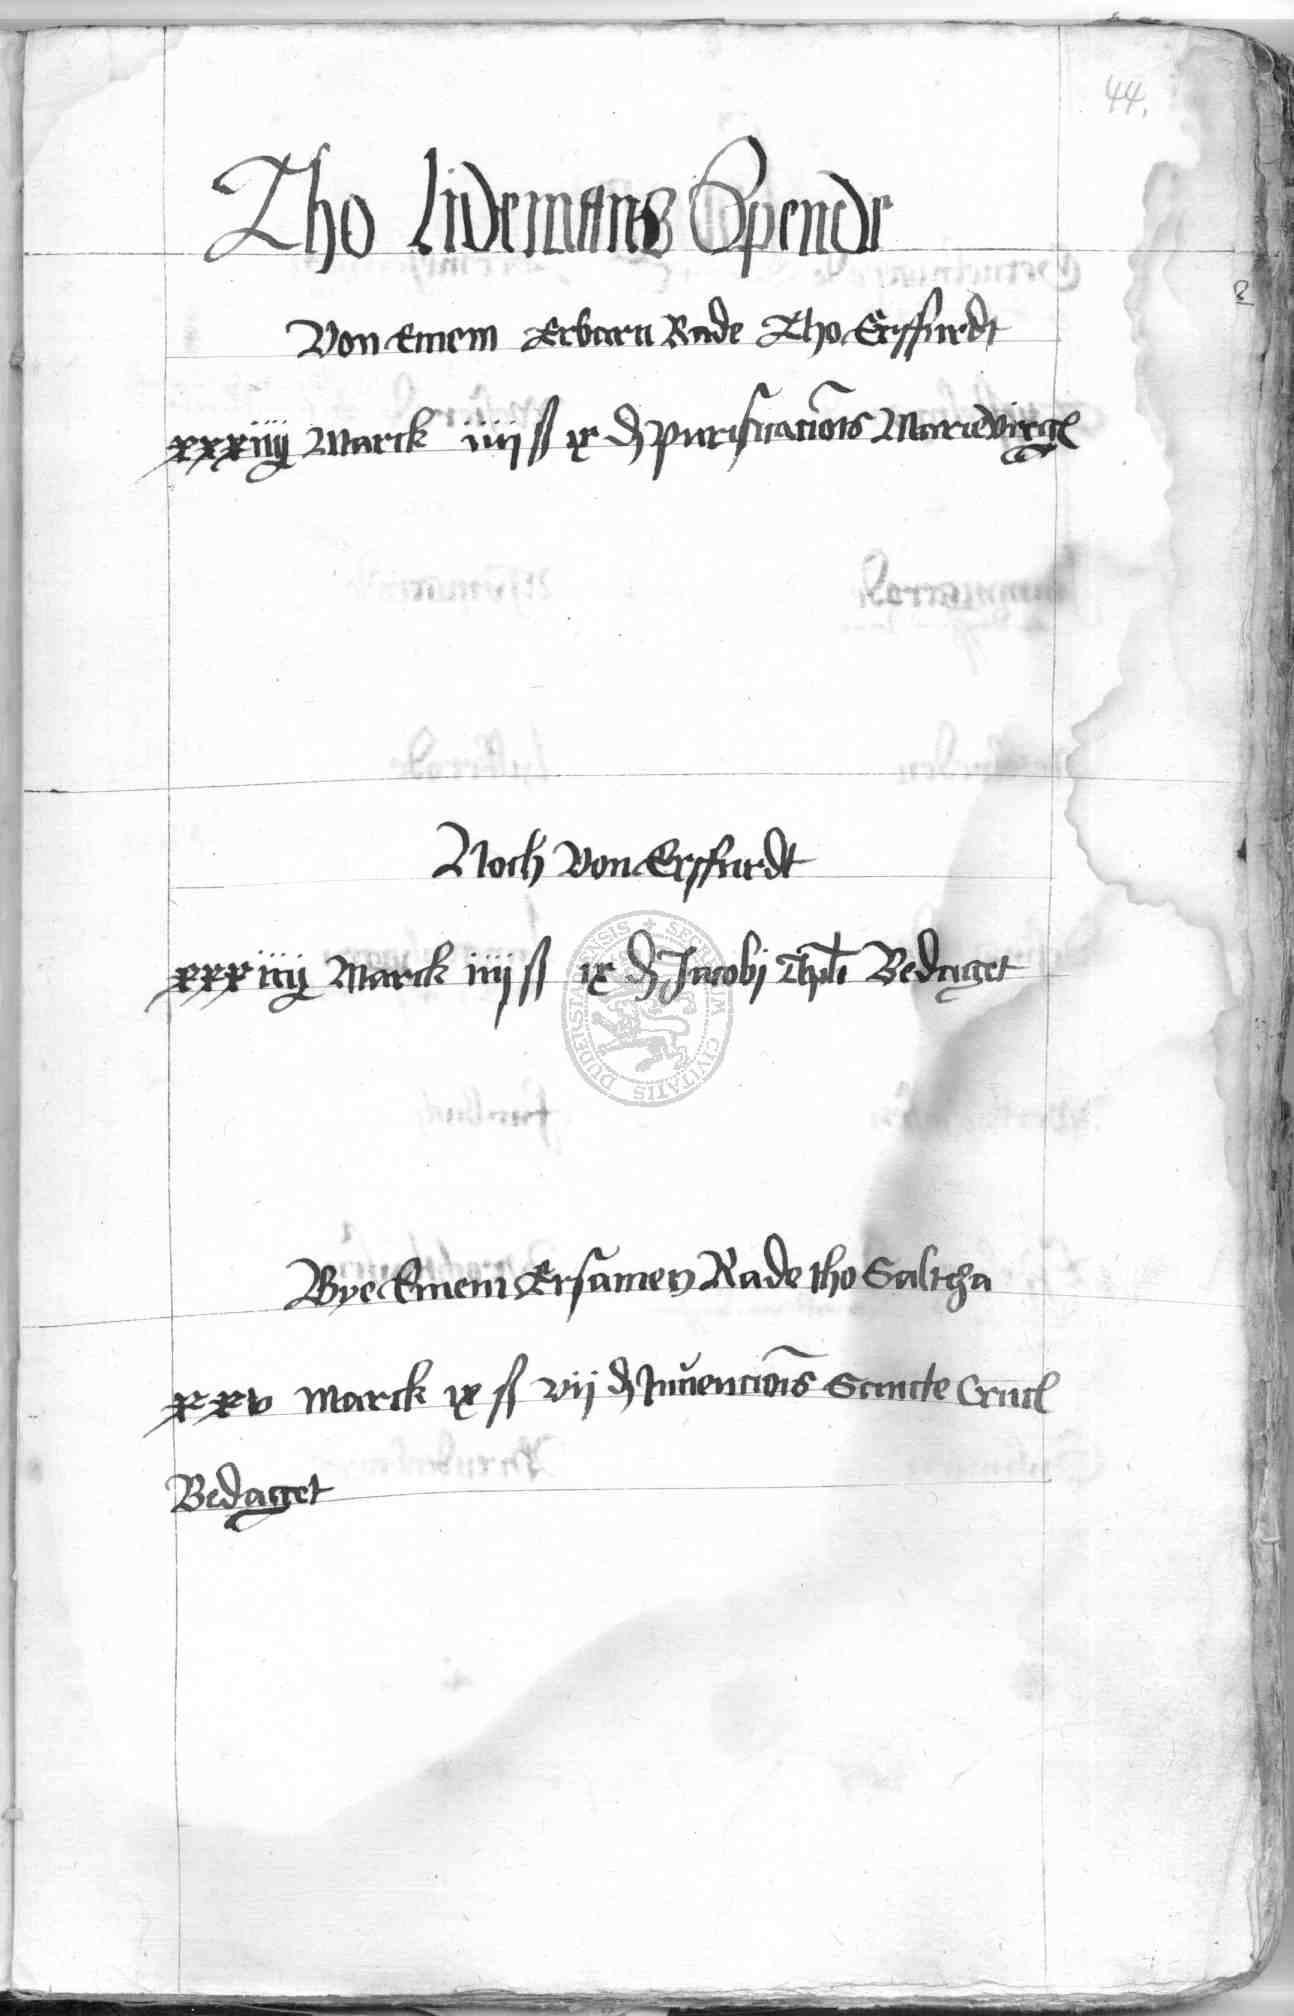 44.
Tho Lidemans Spende
Von Einem Erbarn Rade Tho Erffurdt
xxxiiij Marck iiij ß ix ₰ purificacionis Marie virgis
Noch von Erffurdt
xxxiiij Marck iiij ß ix ₰ Jacobj Apli Bedaget
Bye Einem Ersamen Rade tho Saltza
xxv Marck ix ß vij ₰ Inuencionis Sancte Crucis
Bedaget
SECRETUM CIVITATIS DUDERSTADENSIS